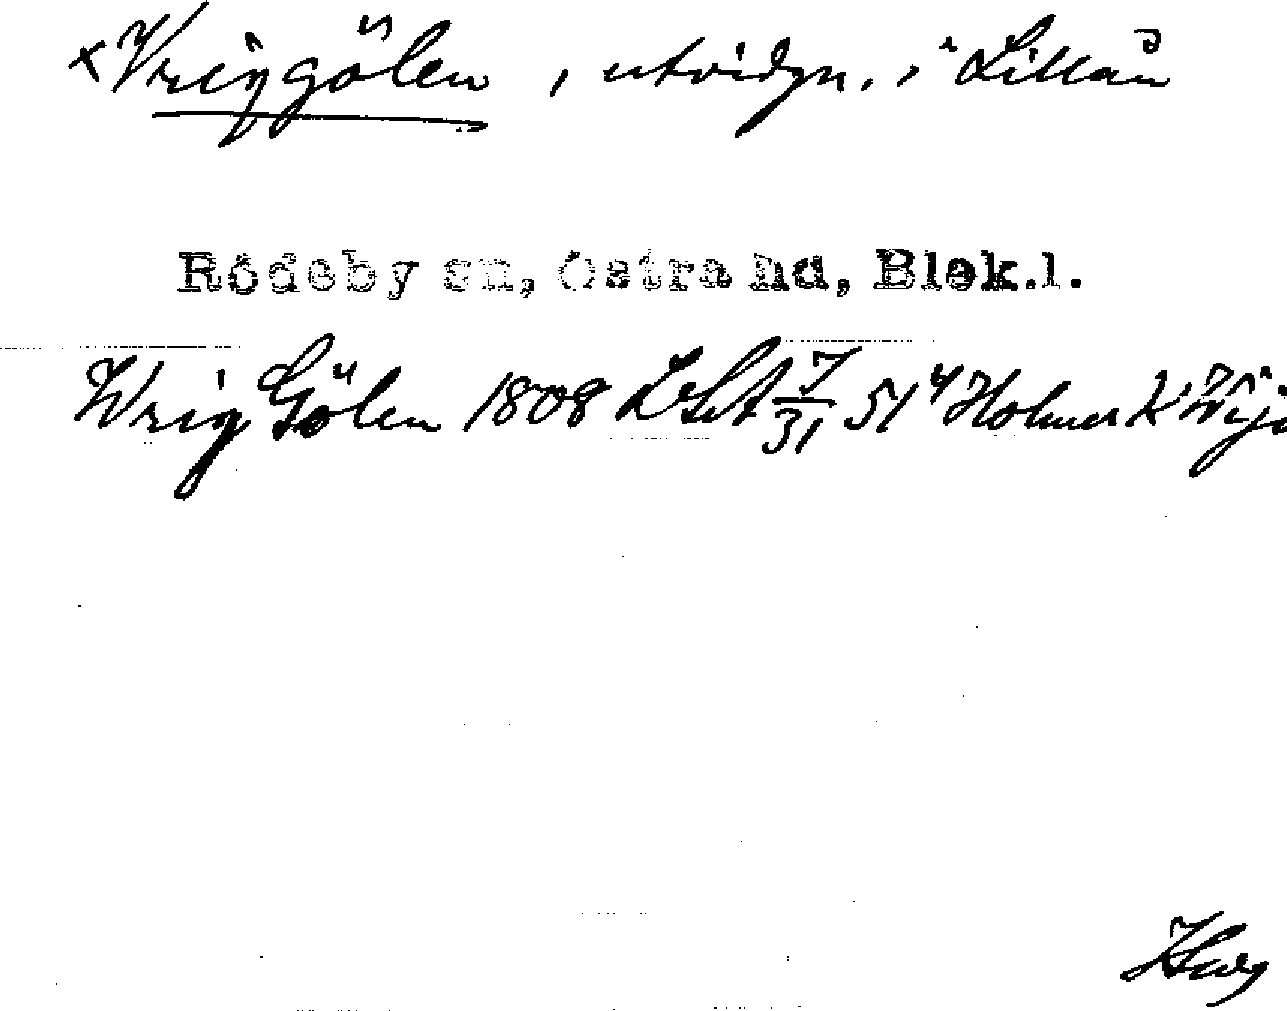 ×Vriggölen, utvidgn. i Lillån
Rödeby sn, Östra hd, Blek.l.
Wrig Gölen 1808 LSA 7/31 51 4 Holmer K